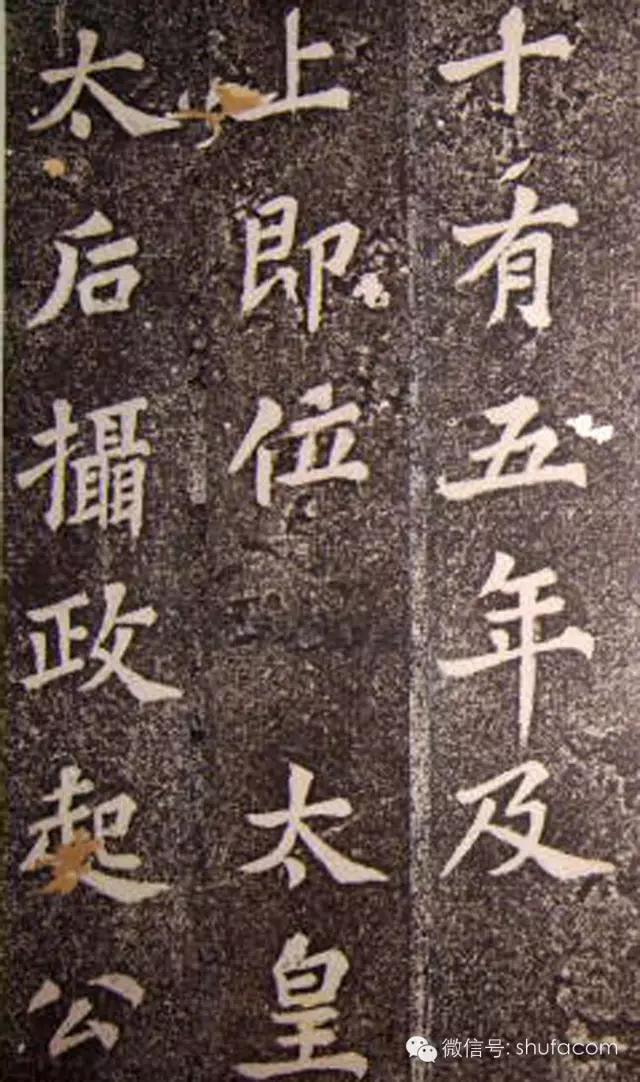 十有五年及
上即位 太皇
太后攝政起公
微信号: shufacom